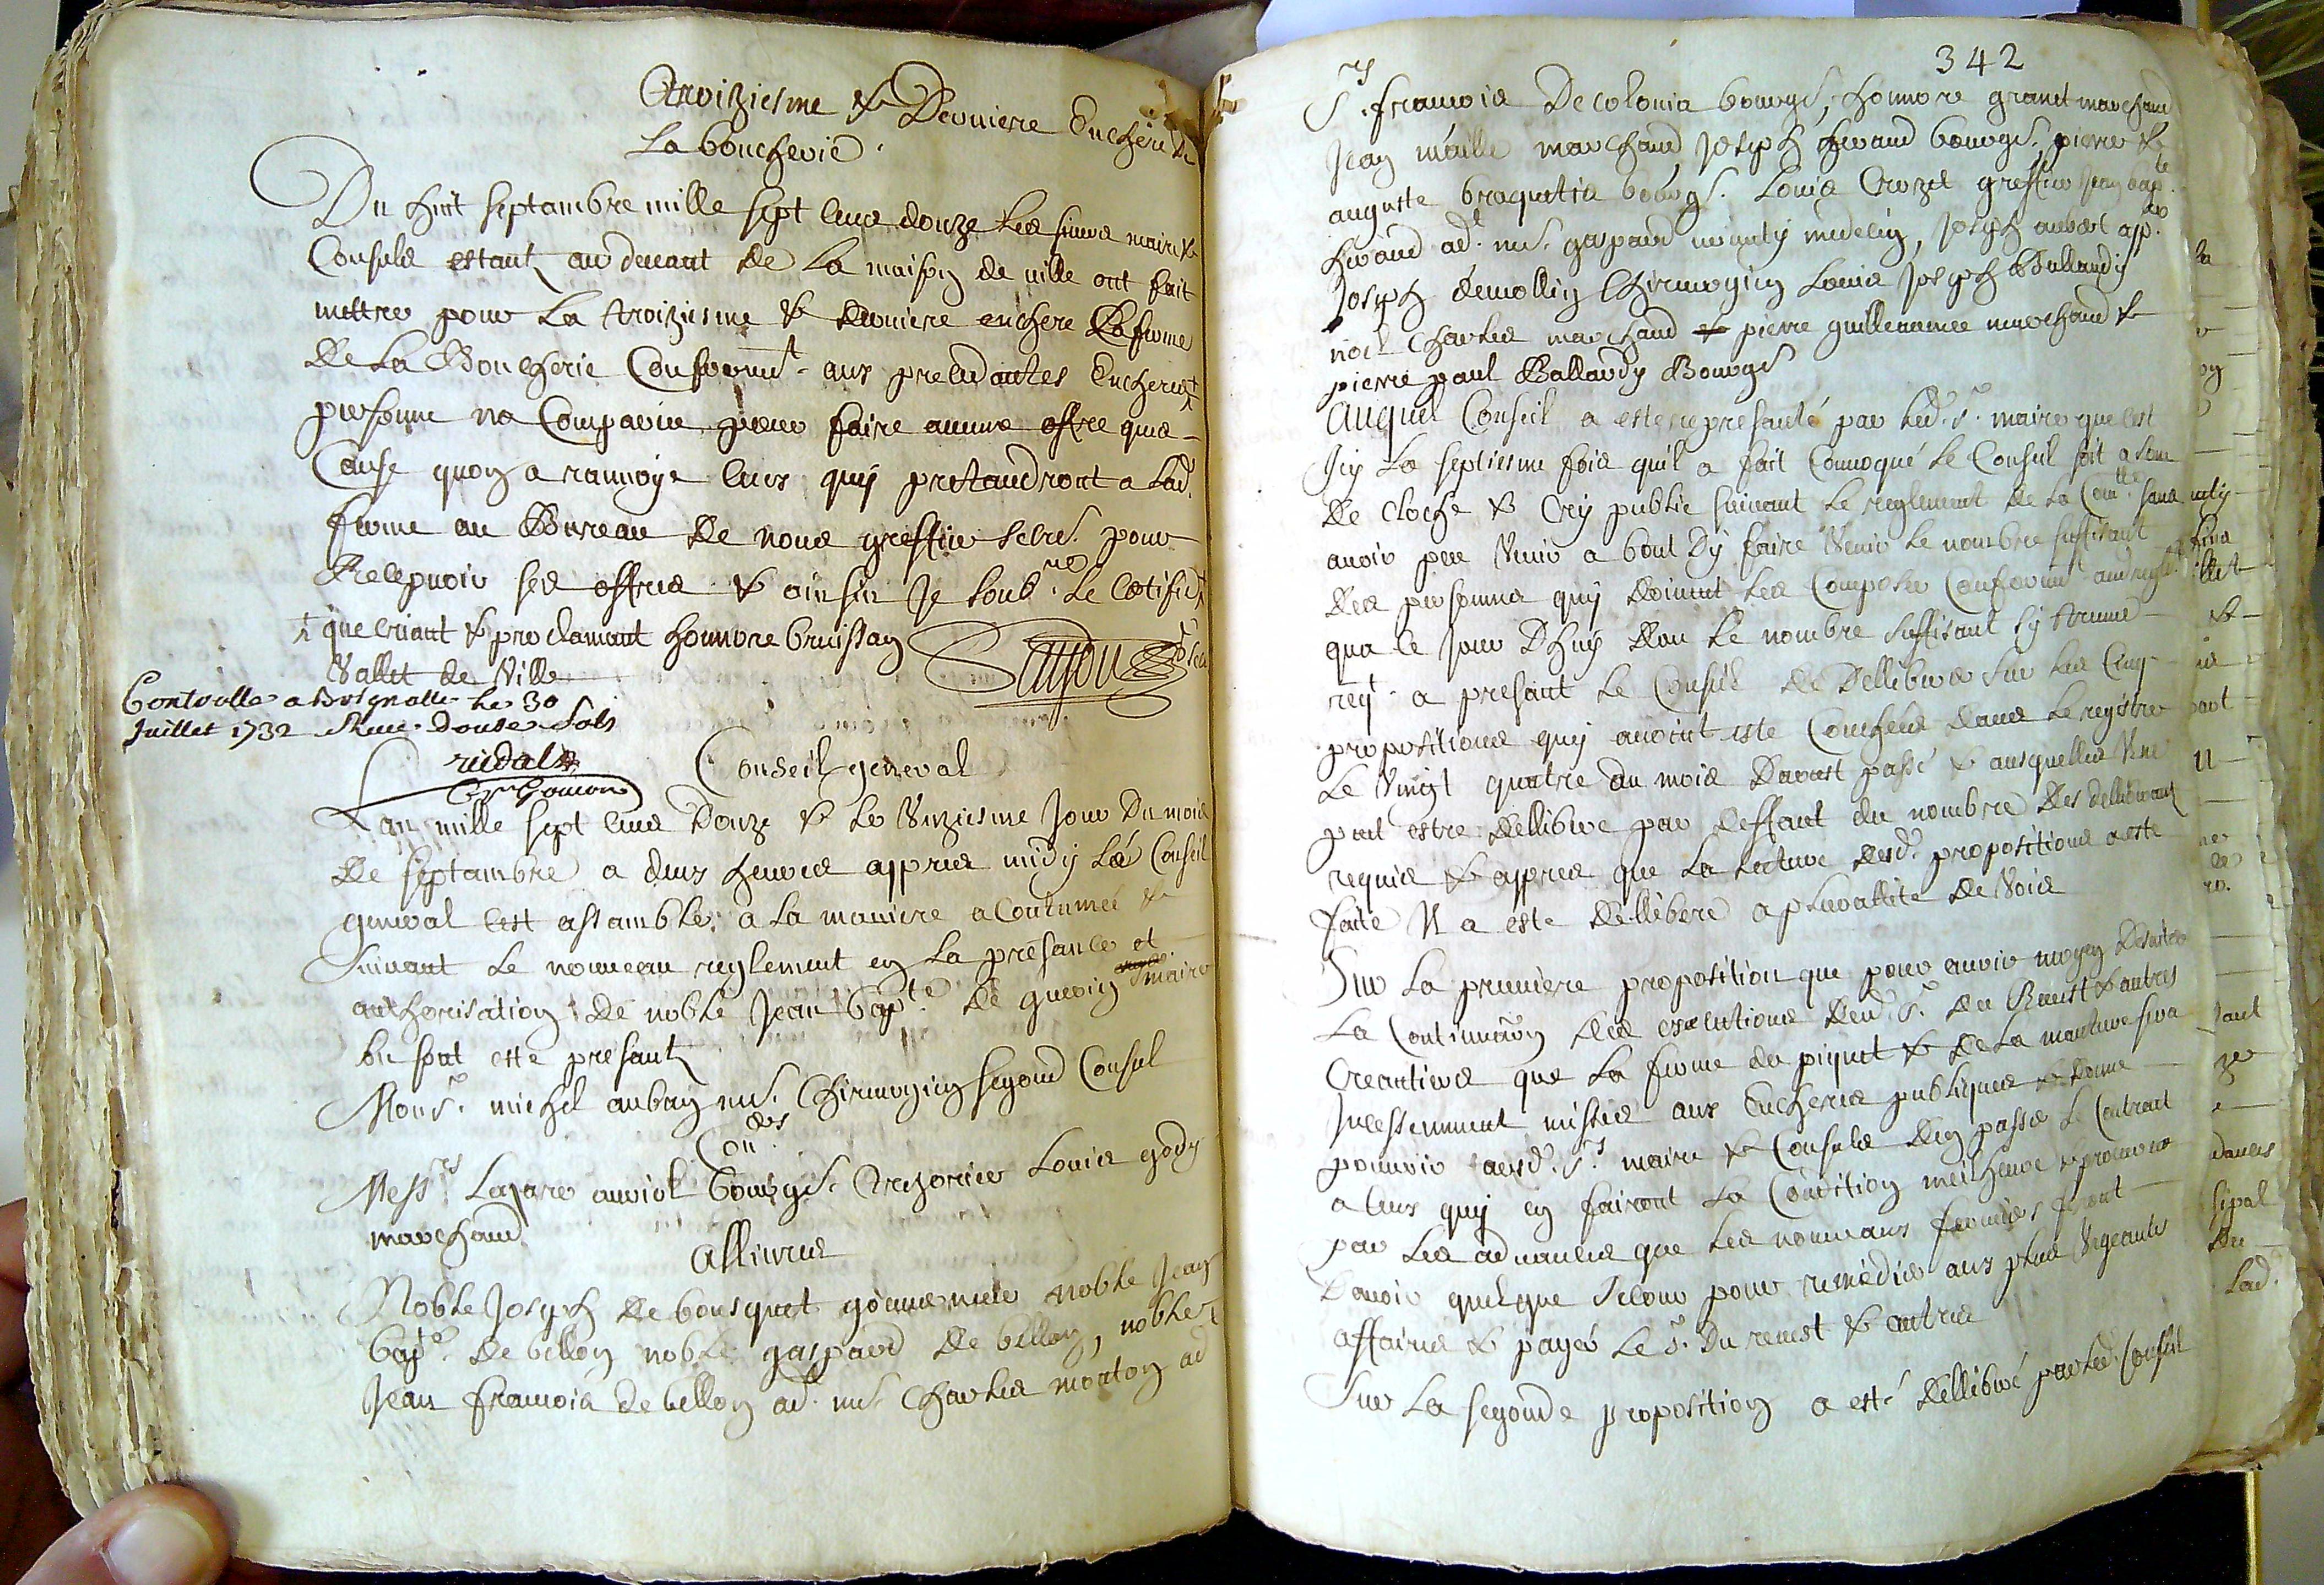 troiziesme & Derniere Enchere De
La boucherie
Du huit septambre mille sept cens douze les sieurs maire &
Consuls estant au devant de La maison de ville ont fait
mettre pour La troiziesme & derniere enchere La ferme
De La Boucherie Conformt. aux precedantes Encheres
personne na Compareu pour faire aucune offre que
Cause quon a ranvoye ceux quy pretandront a lad.
ferme au Bureau de nous greffier secre. pour
Recepvoir ses offres & ainsin Je sousne. Le certifie
que criant & proclamant honnore bruissan
Vallet de Ville
Controlle a Brignolle le 30
Juillet 1732 Reçu Douse Sols
ridal
Conseil general
Lan mille sept cens Douze & Le Unziesme Jour Du mois
De septambre a deux heures appres midy Le Conseil
general cest assamble a La maniere acoutumée &
suivant Le nouveau reglement en La presance et
authorisation De noble Jean bapte. De guerin maire
ou sont este presant
Monsr. michel auban me. Chirurgien segond Consul
Coners
Messrs. Lazare auriol bourgs. Trezorier Louis gody
marchand
allivres
Noble Joseph De bousquet noble Jean
bapte. De bellon noble gaspard De bellon, noble
Jean francois de bellon ad. me. Charles monton ad
342
Srs. francois De colonia bourgs, honnore granet marchand
Jean maille marchand Joseph giraud bourgs. pierre &
auguste braquetia bourgs. Louis Crozet greffier Jean bapte.
giraud adt. me. gaspard minuty medecin, Joseph aubert appre.
Joseph demollin Chirurgien Louis Joseph Ballardy
noel Charles marchand & pierre guilleaumes marchand &
pierre paul Ballardy Bourgs
Auquel Conseil a este represanté par led. sr. maire que cest
Icy La septiesme fois quil a fait Convoqué Le Conseil soit a son
De cloche & Cry public suivant Le reglement de La Comtte. sans
avoir peu Venir a bout Dy faire Venir Le nombre suffisant
Des personnes quy doivent Les Composer Conformt. aud regt.
que ce Jour Dhuy dou Le nombre suffisant sy treuve
reqt. a presant Le Conseil De Dellibere sur Les Cinq
propositions quy avoint este Couchées dans Le registre
Le Vingt quatre du mois Davost passé & ausquelles Nen
peut estre Dellibere par deffaut du nombre Des deliberans
requis & appres que La lecture desd. propositions a este
faite Il a este Dellibere a pluralitte De Vois
Sur La premiere proposition que pour avoir moyen Deviter
La Continuãon des exécutions dud. sr. Du Revest & autres
Creantiers que La ferme du piquet & De La mouture sera
Incessemment misses aux Encheres publiques & donne
pouvoir ausd. srs. maire & Consuls Den passer Le Contract
a ceux quy en fairont La Condition meilheure & procurer
par Les advances que Les nouveaux fermiers feront
Davoir quelque secour pour remedier aux plus Urgeantes
affaires & payer Le sr. Du revest & autres
Sur La segonde proposition a esté Dellibéré par led. Conseil